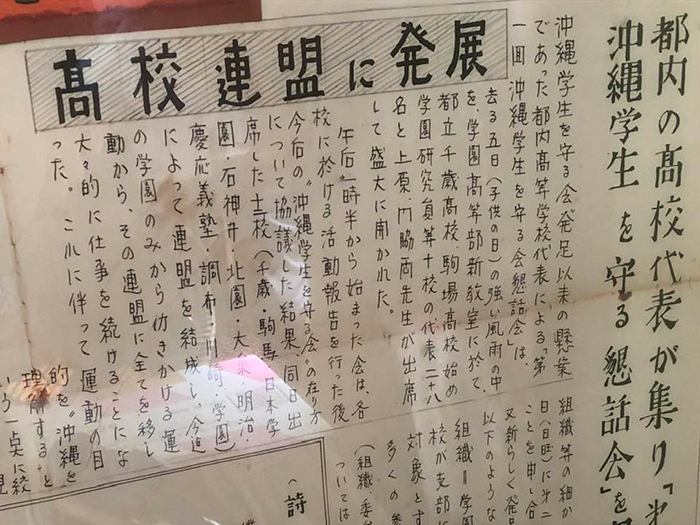 都内の高校代表が集り「
沖縄学生を守る懇話会」を
髙校連盟に発展
沖縄学生を守る会発足以来の懸案
であった都内高等学校代表による「第
一回沖縄学生を守る会懇話会」は、
去る五日(子供の日)の強い風雨の中
を学園高等部新教室に於て、
都立千歳高校、駒場高校始め
学園研究員等十校の代表二十八
名と上原、門脇両先生が出席
して盛大に開かれた。
午后一時半から始まった会は、各
校に於ける活動報告を行った後
今后の〝沖縄学生を守る会〟の在り方
について協議した結果、同日出
席した十二校(千歳・駒場・日本学
園・石神井・北園・大泉・明治・
慶応義塾・調布・川崎・学園)
によって連盟を結成し、今迄
の学園のみから仂きかける運
動から、その連盟に全てを移し
大々的に仕事を続けることにな
った。これに伴って運動の目
的を〝沖縄を
理解する〟と
いう一点に絞
組織等の細か
日(日曜)に第二
ことを申し合
又新らしく発
以下のような
組織＝学園
校が支部に
対象とす
多くの参
(組織、委
ついては
〈詩